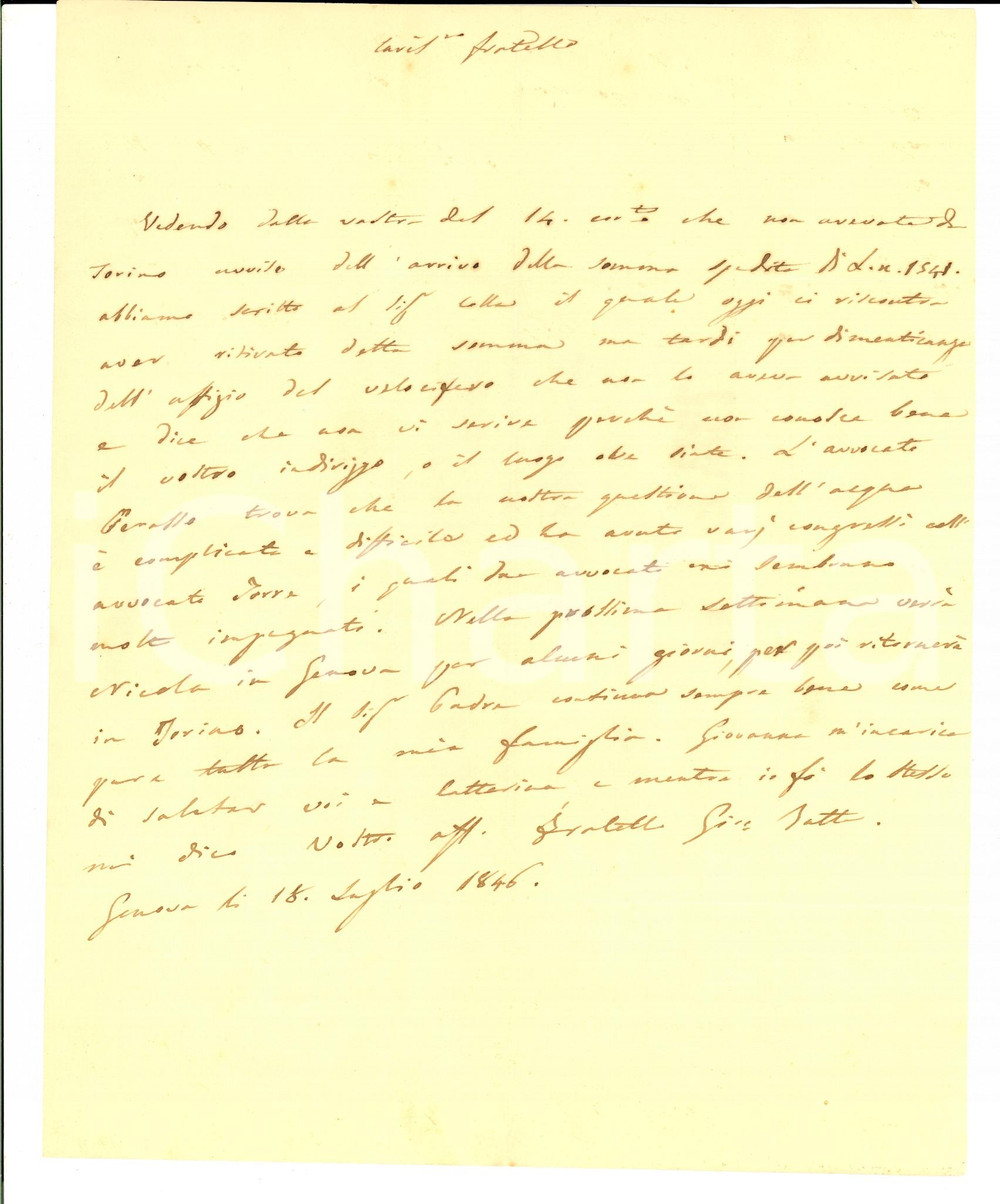 Caris.mo fratello
Vedendo dalla vostra del 14. corr.te che non avevate da
Torino avviso dell'arrivo della somma spedita di L.n. 1541.
abbiamo scritto al Sig.r Colla il quale oggi ci riscontra
aver ritirato detta somma ma tardi per dimenticanza
dell'uffizio del velocifero che non lo aveva avvisato
e dice che non vi scrive perchè non conosce bene
il vostro indirizzo, o il luogo ove siete. L'avvocato
trova che la nostra questione dell'acqua
è complicata e difficile ed ha avuto varj congressi coll'
avvocato Torre, i quali due avvocati mi sembrano
molto impegnati. Nella prossima settimana verrà
Nicola in Genova per alcuni giorni, per poi ritornerà
in Torino. Il Sig.r Padre continua sempre bene come
pure tutta la mia famiglia. Giovanna m'incarica
di salutar voi e Catterina e mentre io fò lo stesso
mi dico Vostro aff. Fratello Gio: Batta.
Genova li 18. Luglio 1846.
iCharta